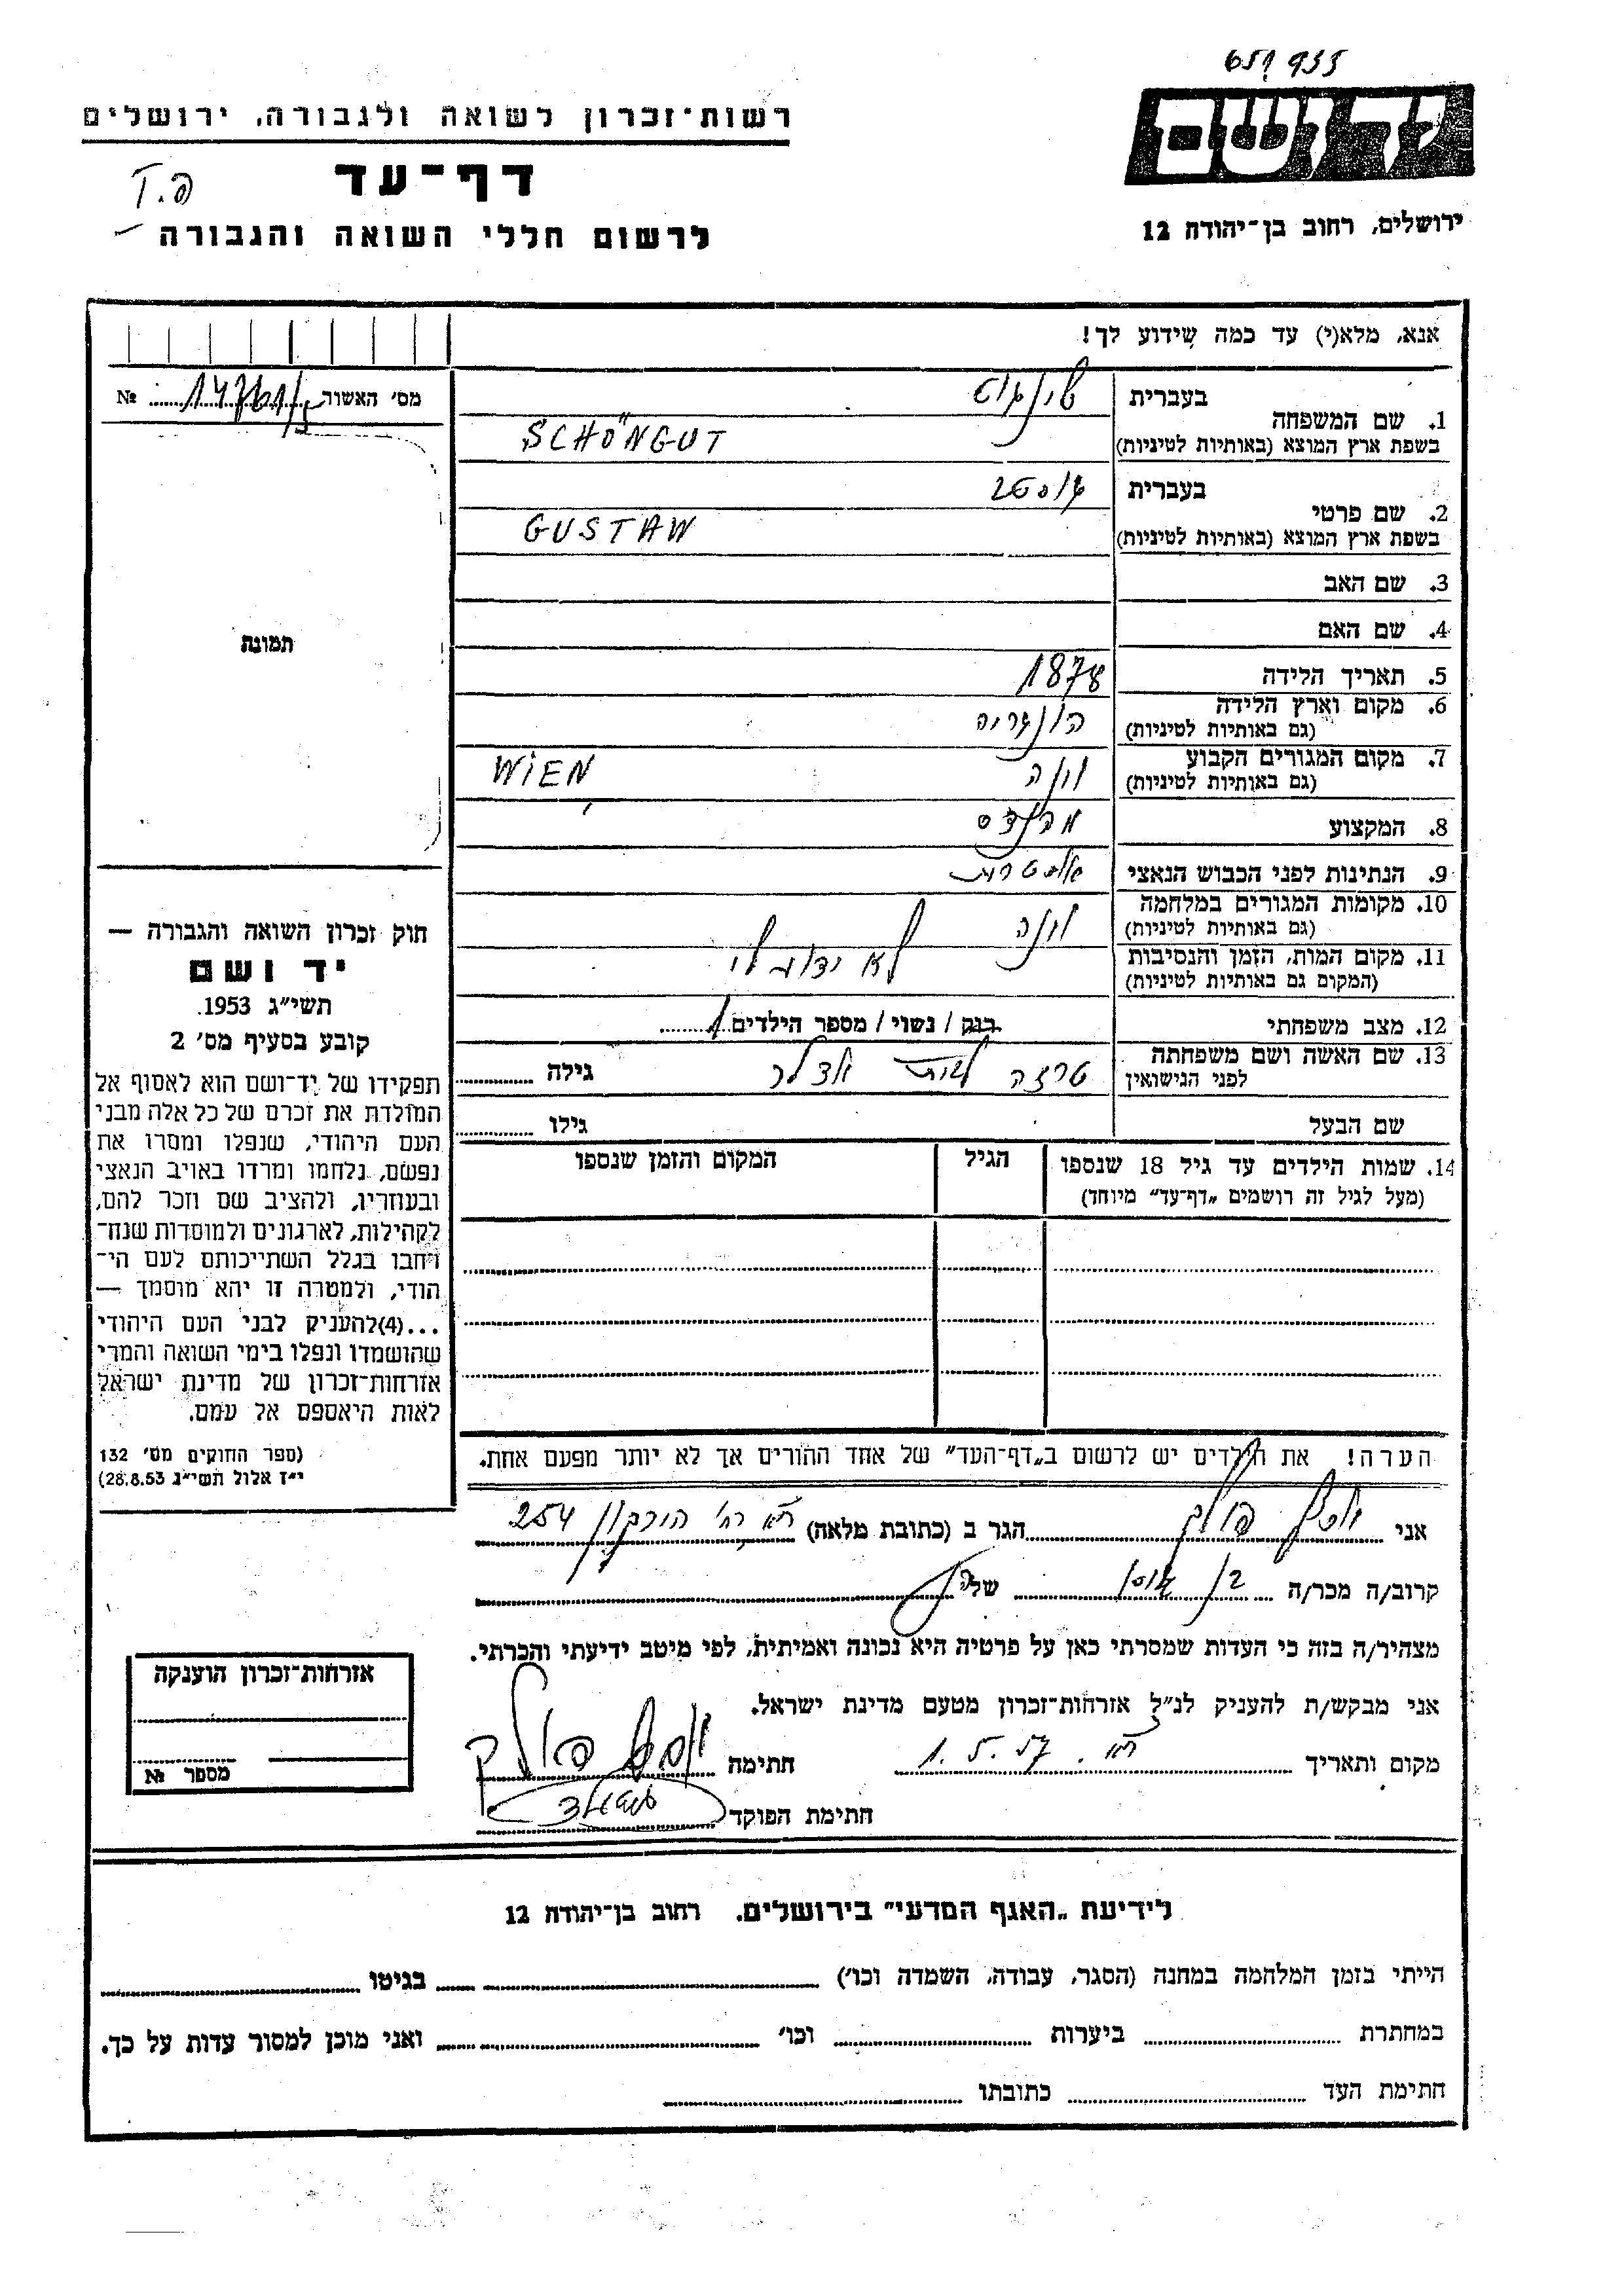 רשות־זכרון לשואה ולגבורה, ירושלים
דף־עד
לרשום חללי השואה והגבורה
יד ושם
ירושלים, רחוב בן־יהודה 12
אנא, מלא(י) עד כמה שידוע לך!
מס׳ האשור № 
1. שם המשפחה
בעברית
בשפת ארץ המוצא (באותיות לטיניות) SCHÖNGUT
2. שם פרטי
בעברית גוסטב
בשפת ארץ המוצא (באותיות לטיניות) GUSTAW
3. שם האב
4. שם האם
5. תאריך הלידה 1878
6. מקום וארץ הלידה הונגריה
(גם באותיות לטיניות)
7. מקום המגורים הקבוע וינה WIEN
(גם באותיות לטיניות)
8. המקצוע מהנדס
9. הנתינות לפני הכבוש הנאצי
10. מקומות המגורים במלחמה וינה
(גם באותיות לטיניות)
11. מקום המות, הזמן והנסיבות לא ידוע לי
(המקום גם באותיות לטיניות)
12. מצב משפחתי רוק / נשוי / מספר הילדים 1
13. שם האשה ושם משפחתה טרזה לבית אדלר גילה
לפני הנישואין
שם הבעל גילו
14. שמות הילדים עד גיל 18 שנספו הגיל המקום והזמן שנספו
(מעל לגיל זה רושמים „דף־עד" מיוחד)
הערה! את הילדים יש לרשום ב„דף־העד" של אחד ההורים אך לא יותר מפעם אחת.
אני יוסף פולק הגר ב (כתובת מלאה) ת״א רח׳ הירקון 254
קרוב/ה מכר/ה בן של/ה
מצהיר/ה בזה כי העדות שמסרתי כאן על פרטיה היא נכונה ואמיתית, לפי מיטב ידיעתי והכרתי.
אני מבקש/ת להעניק לנ״ל אזרחות־זכרון מטעם מדינת ישראל.
מקום ותאריך ת״א. 1.5.57 חתימה יוסף פולק
חתימת הפוקד
תמונה
חוק זכרון השואה והגבורה —
יד ושם
תשי״ג 1953.
קובע בסעיף מס׳ 2
תפקידו של יד־ושם הוא לאסוף אל
המולדת את זכרם של כל אלה מבני
העם היהודי, שנפלו ומסרו את
נפשם, נלחמו ומרדו באויב הנאצי
ובעוזריו, ולהציב שם וזכר להם,
לקהילות, לארגונים ולמוסדות שנח־
רחבו בגלל השתייכותם לעם הי־
הודי, ולמטרה זו יהא מוסמך —
...(4)להעניק לבני העם היהודי
שהושמדו ונפלו בימי השואה והמרי
אזרחות־זכרון של מדינת ישראל
לאות היאספם אל עמם.
(ספר החוקים מס׳ 132
י״ז אלול תשי״ג 28.8.53)
אזרחות־זכרון הוענקה
מספר №
לידיעת „האגף המדעי" בירושלים, רחוב בן־יהודה 12
הייתי בזמן המלחמה במחנה (הסגר, עבודה, השמדה וכו׳) בגיטו
במחתרת ביערות וכו׳ ואני מוכן למסור עדות על כך.
חתימת העד כתובתו